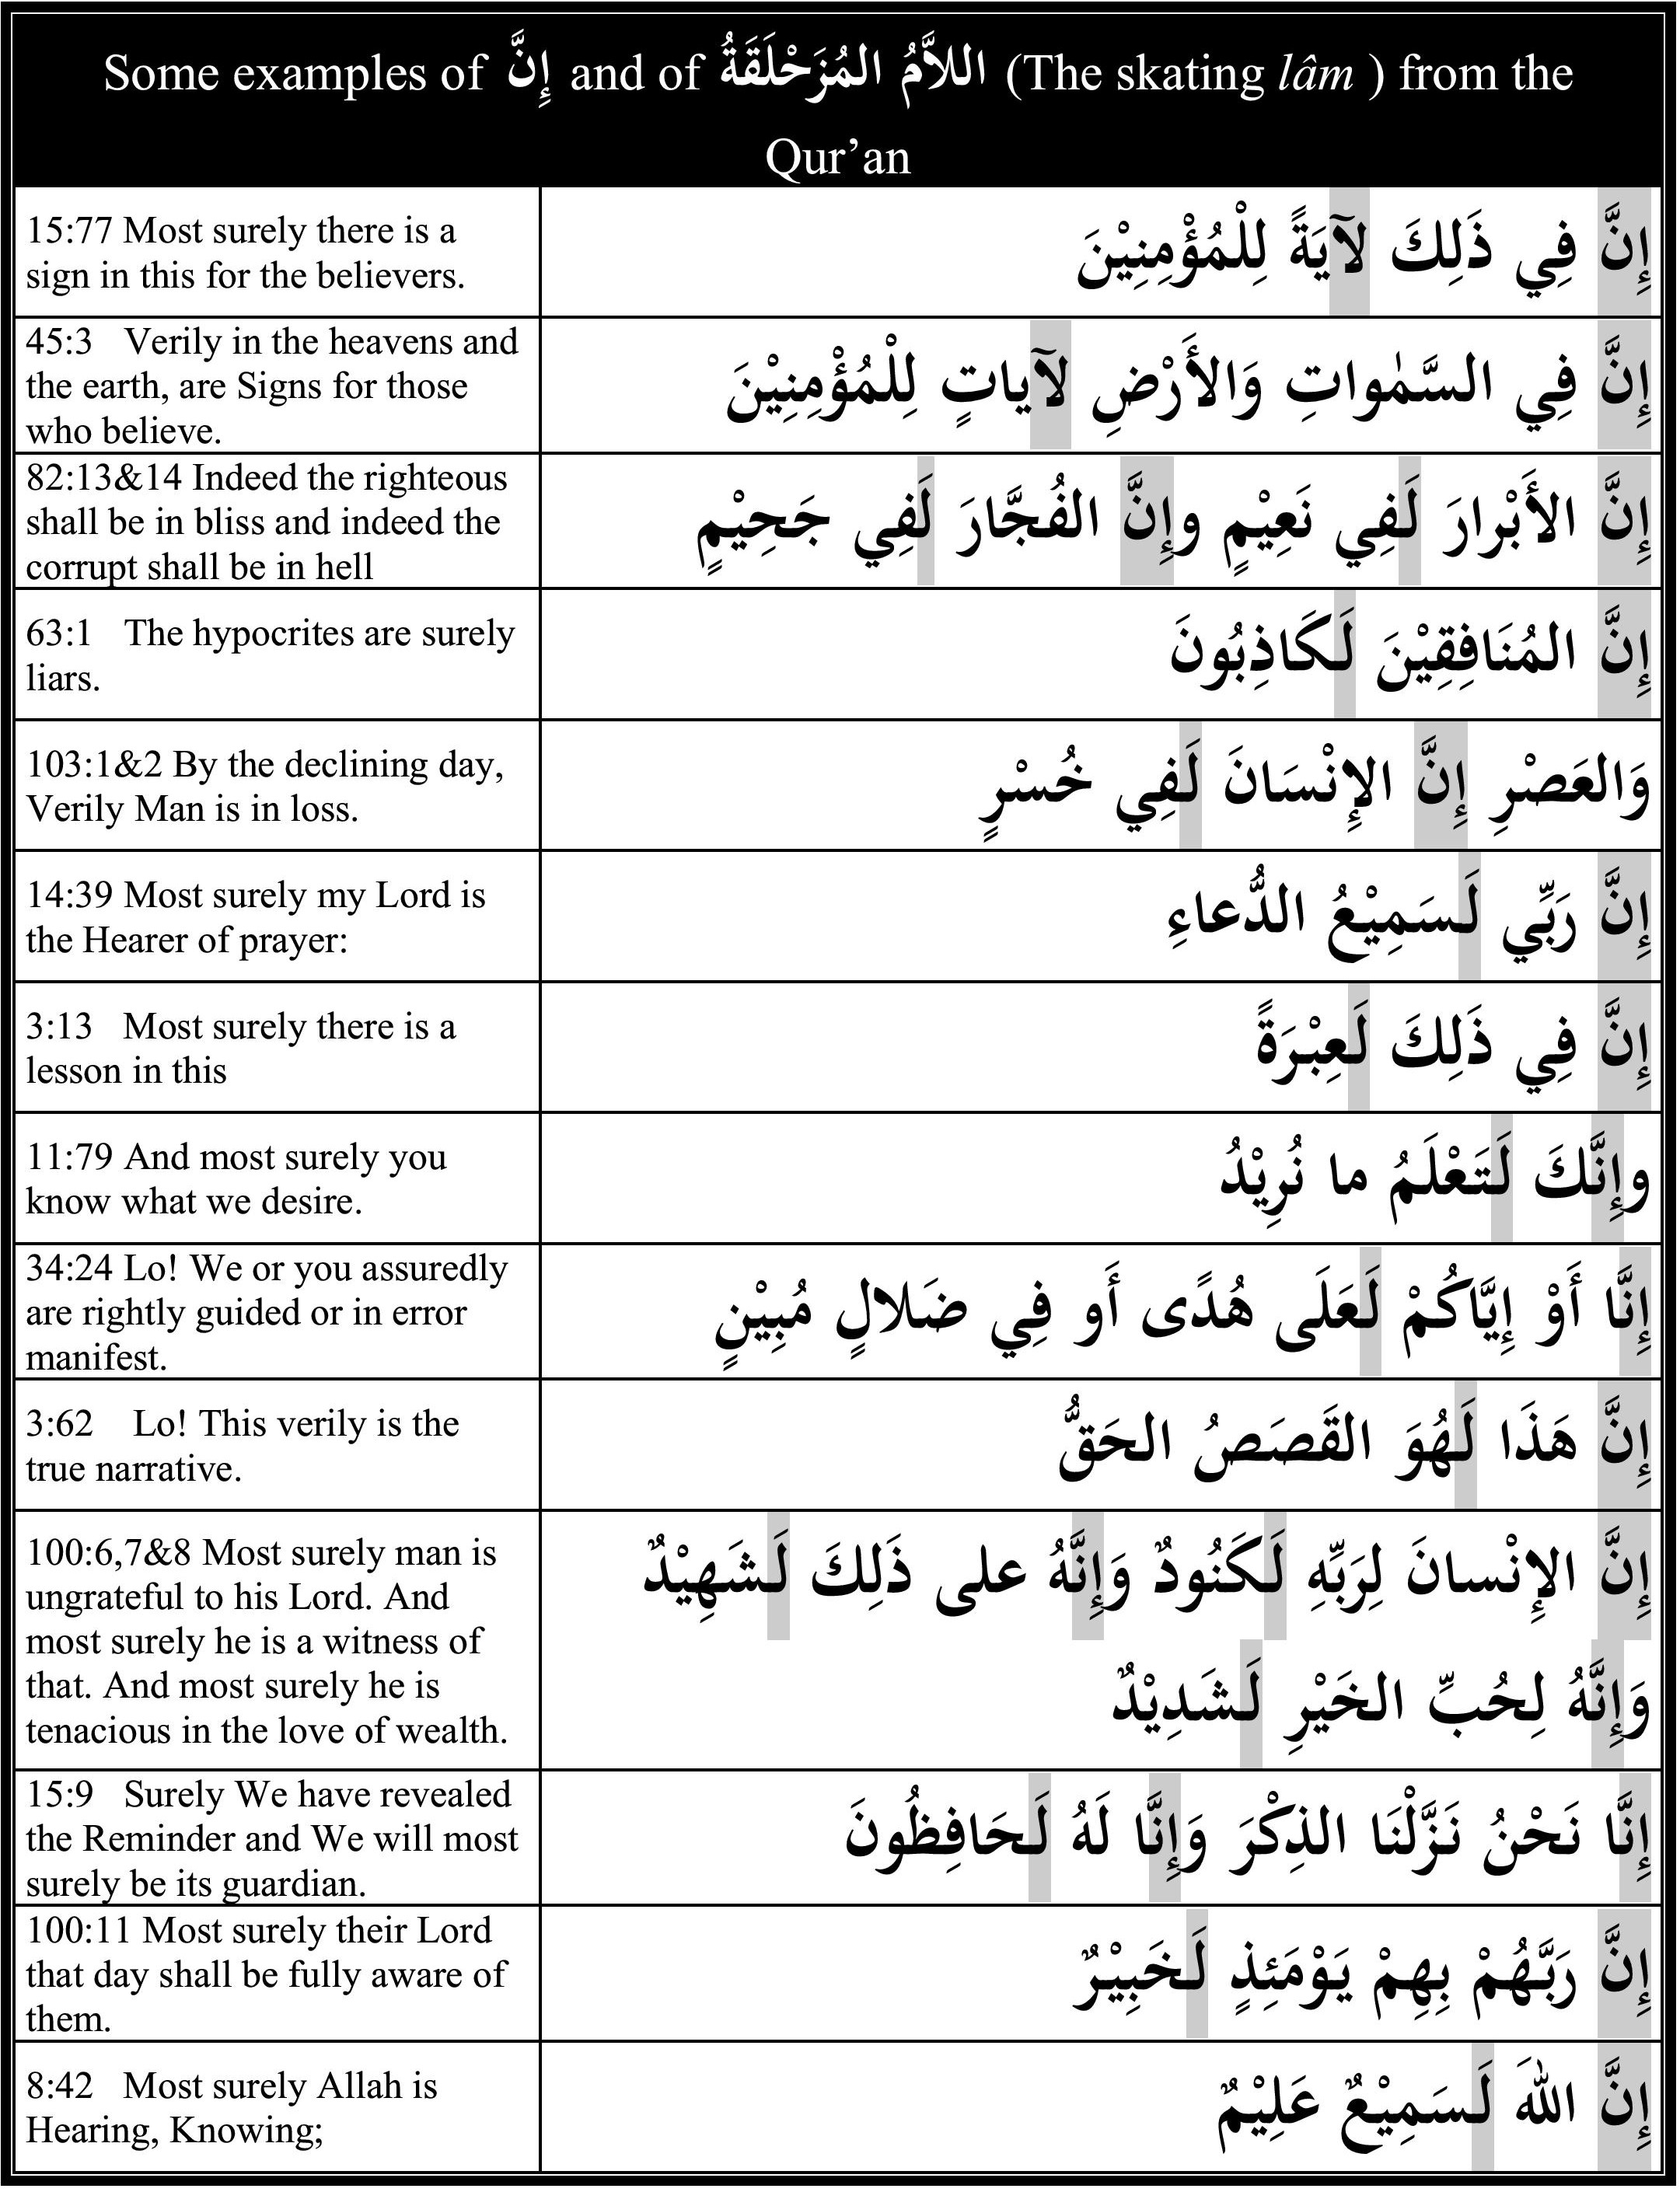 Some examples of إِنَّ and of اللاَّمُ المُزَحْلَقَةُ (The skating lâm ) from the
Qur’an
15:77 Most surely there is a
sign in this for the believers.
إِنَّ فِي ذَلِكَ لآيَةً لِلْمُؤْمِنِيْنَ
45:3 Verily in the heavens and
the earth, are Signs for those
who believe.
إِنَّ فِي السَّمٰواتِ وَالأَرْضِ لآياتٍ لِلْمُؤْمِنِيْنَ
82:13&14 Indeed the righteous
shall be in bliss and indeed the
corrupt shall be in hell
إِنَّ الأَبْرارَ لَفِي نَعِيْمٍ وإِنَّ الفُجَّارَ لَفِي جَحِيْمٍ
63:1 The hypocrites are surely
liars.
إِنَّ المُنَافِقِيْنَ لَكَاذِبُونَ
103:1&2 By the declining day,
Verily Man is in loss.
وَالعَصْرِ إِنَّ الإِنْسَانَ لَفِي خُسْرٍ
14:39 Most surely my Lord is
the Hearer of prayer:
إِنَّ رَبِّي لَسَمِيْعُ الدُّعاءِ
3:13 Most surely there is a
lesson in this
إِنَّ فِي ذَلِكَ لَعِبْرَةً
11:79 And most surely you
know what we desire.
وإِنَّكَ لَتَعْلَمُ ما نُرِيْدُ
34:24 Lo! We or you assuredly
are rightly guided or in error
manifest.
إِنَّا أَوْ إِيَّاكُمْ لَعَلَى هُدًى أَو فِي ضَلالٍ مُبِيْنٍ
3:62 Lo! This verily is the
true narrative.
إِنَّ هَذَا لَهُوَ القَصَصُ الحَقُّ
100:6,7&8 Most surely man is
ungrateful to his Lord. And
most surely he is a witness of
that. And most surely he is
tenacious in the love of wealth.
إِنَّ الإِنْسانَ لِرَبِّهِ لَكَنُودٌ وَإِنَّهُ على ذَلِكَ لَشَهِيْدٌ
وَإِنَّهُ لِحُبِّ الخَيْرِ لَشَدِيْدٌ
15:9 Surely We have revealed
the Reminder and We will most
surely be its guardian.
إِنَّا نَحْنُ نَزَّلْنَا الذِكْرَ وَإِنَّا لَهُ لَحَافِظُونَ
100:11 Most surely their Lord
that day shall be fully aware of
them.
إِنَّ رَبَّهُمْ بِهِمْ يَوْمَئِذٍ لَخَبِيْرٌ
8:42 Most surely Allah is
Hearing, Knowing;
إِنَّ اللهَ لَسَمِيْعٌ عَلِيْمٌ